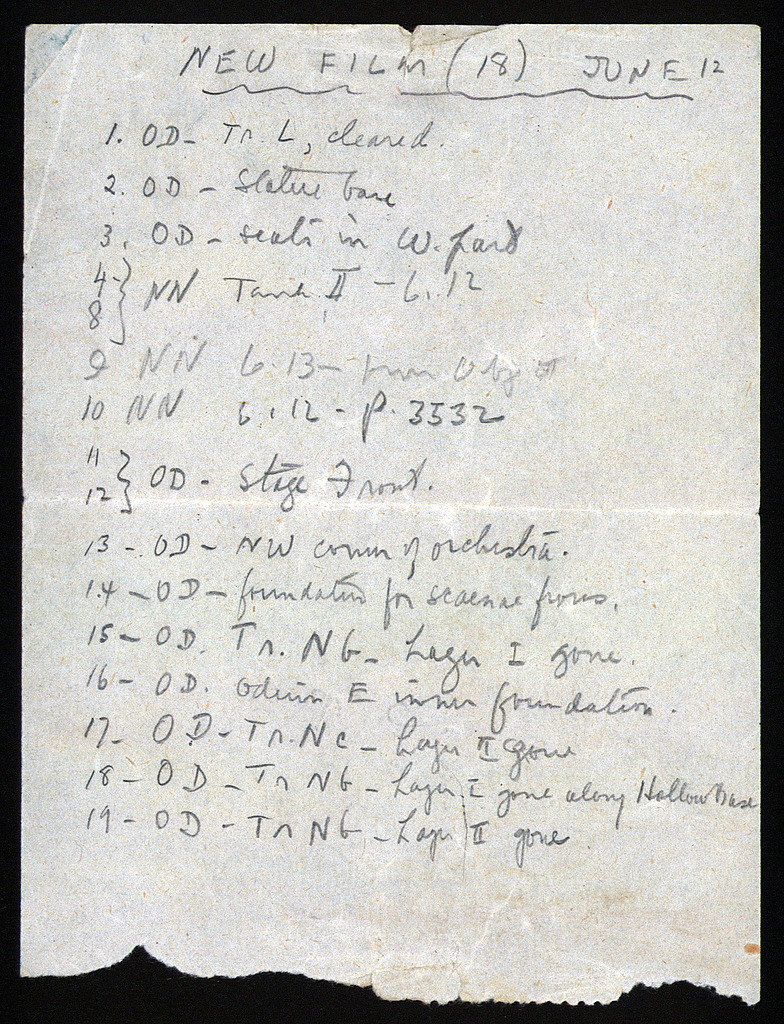 NEW FILM (18) JUNE 12
1. OD - Tr. L, cleared.
2. OD - Statue base
3. OD - seats in W. part
4-
8 } NN Tank II - 6.12
9 NN 6.13 - from
10 NN 6.12 - P. 3532
11
12 } OD - Stage Front.
13 - OD - NW corner of orchestra.
14 - OD - foundation for scaenae frons.
15 - OD. Tr. Nb - Layer I gone.
16 - OD. Odeion E inner foundation.
17 - OD - Tr. Nc - Layer II gone
18 - OD - Tr Nb - Layer I gone along Hollow Base
19 - OD - Tr Nb - Layer II gone.